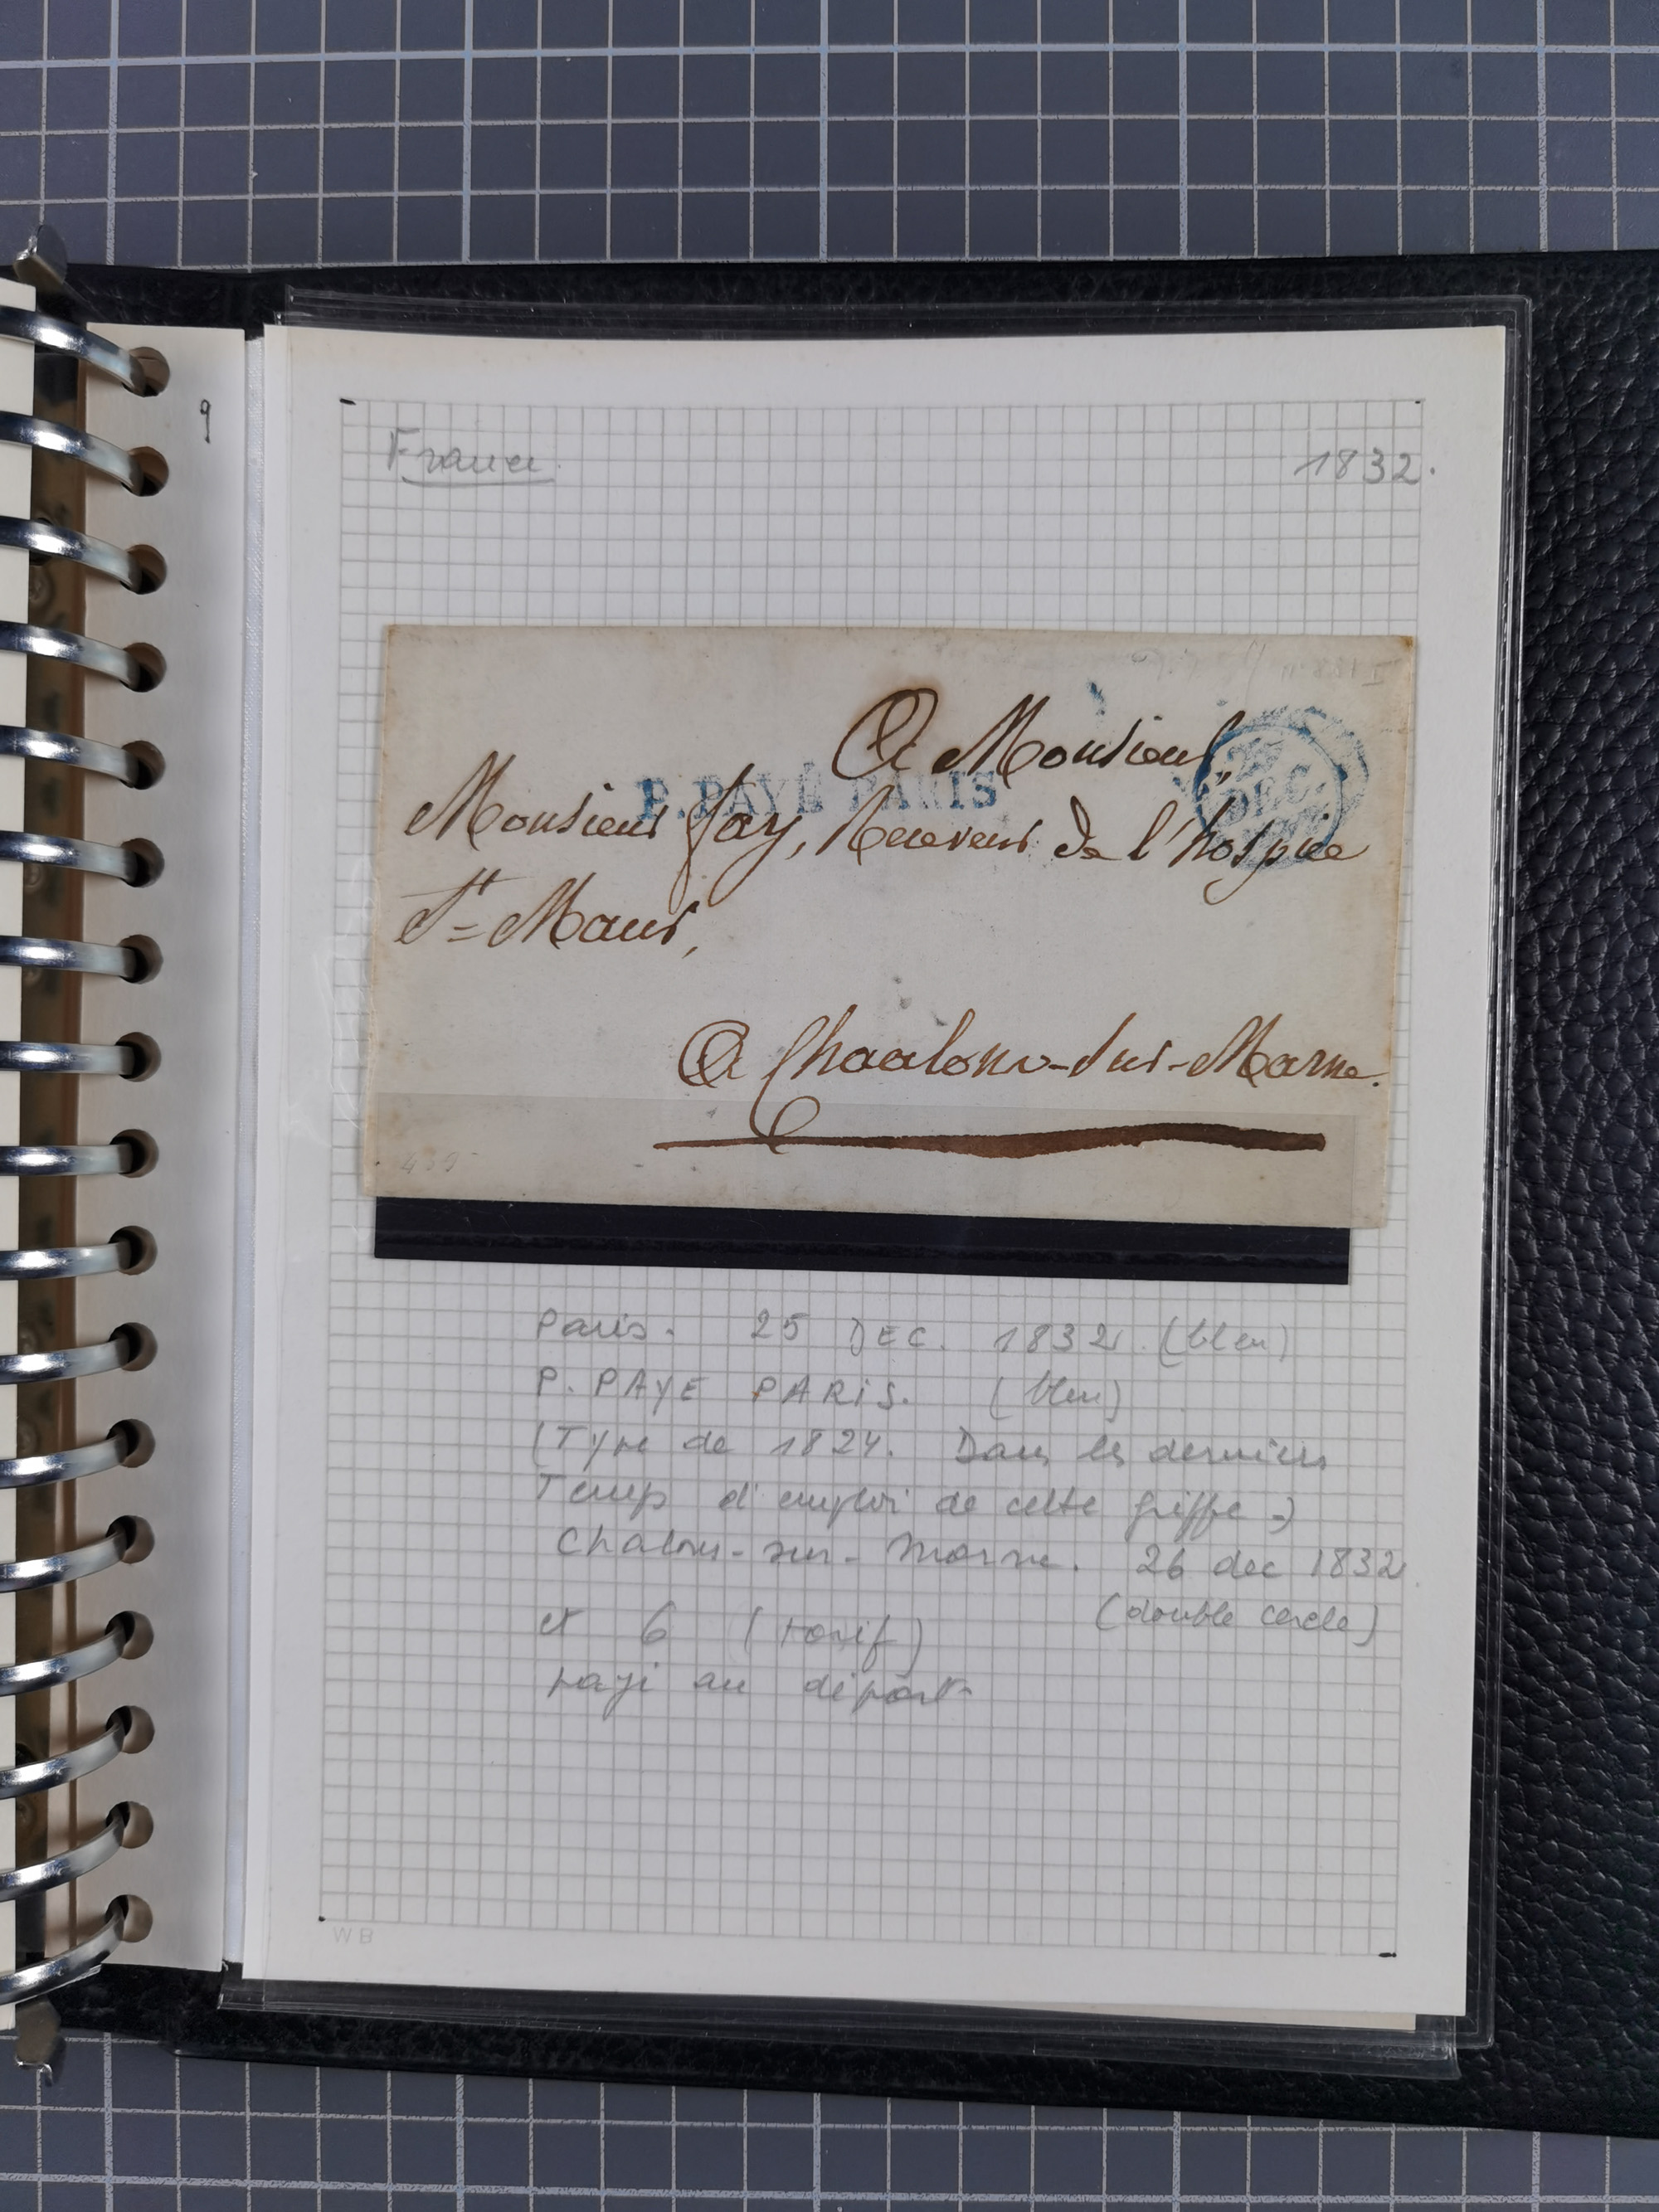 9
France
1832.
A Monsieur,
P. PAYÉ PARIS
25
DEC.
Monsieur Jay, Receveur de l'hospice
St= Maur,
A Chaalons-sur-Marne.
Paris. 25 DEC. 1832. (bleu)
P. PAYE PARIS. (bleu)
(Type de 1824. Dans les derniers
Temps d'emploi de cette griffe.)
Chalons-sur-Marne. 26 dec 1832.
(double cercle)
et 6 (tarif)
payé au départ
WB